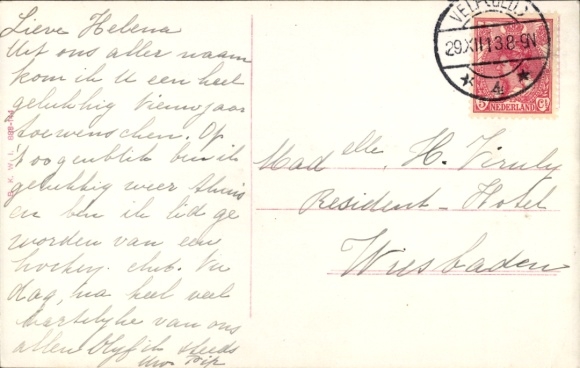 Lieve Helena
Uit ons aller naam
kom ik U een heel
gelukkig Nieuwjaar
toewenschen. Op
't oogenblik ben ik
gelukkig weer thuis
en ben ik lid ge
worden van een
hockey. club. Nu
dag, na heel veel
hartelijke van ons
allen blijf ik steeds
Uw Pip
VELP (GELD.)
29.XII.13.8-9N
4
5 Ct
NEDERLAND
Madelle. H. Viruly
Resident-Hotel
Wiesbaden